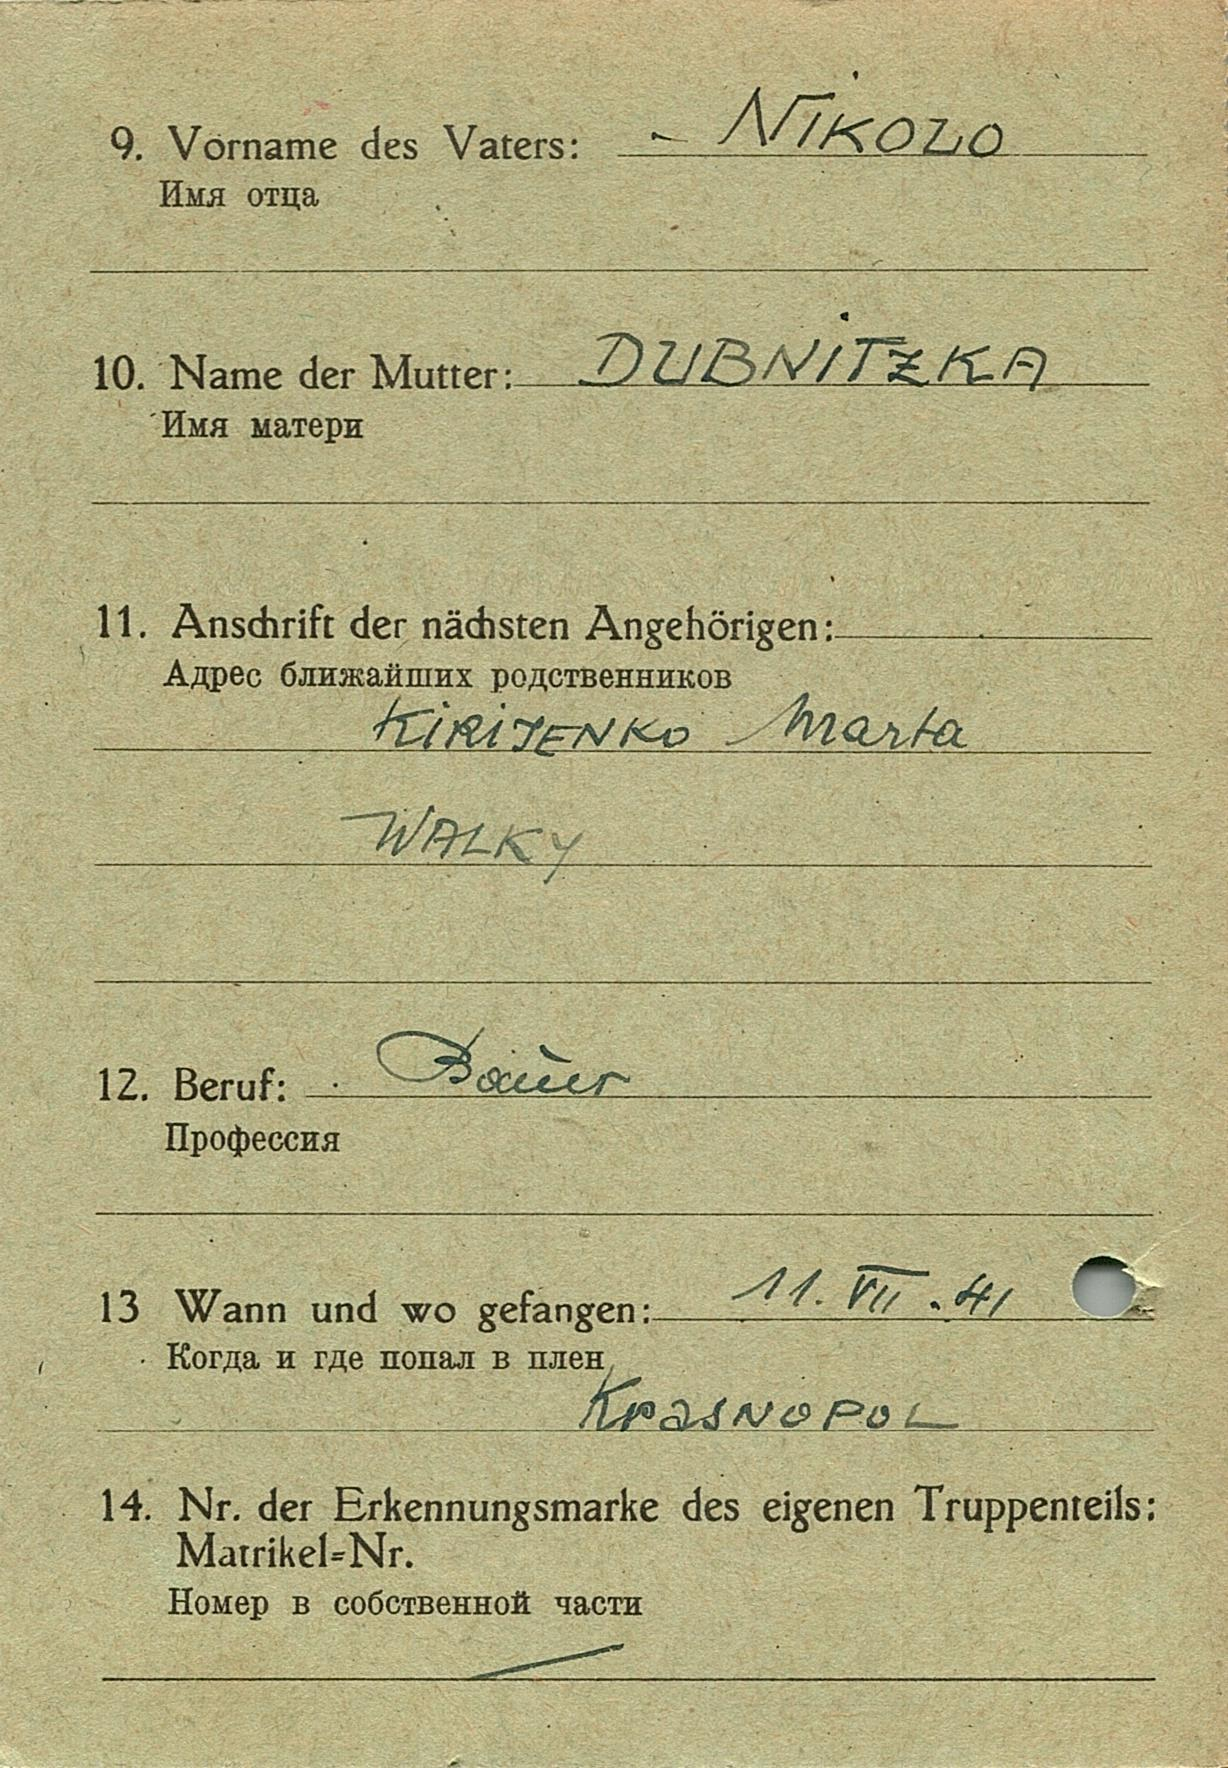 9. Vorname des Vaters: - NIKOLO
Имя отца
10. Name der Mutter: DUBNITZKA
Имя матери
11. Anschrift der nächsten Angehörigen:
Адрес ближайших родственников
KIRIJENKO Marta
WALKY
12. Beruf: Bauer
Профессия
13 Wann und wo gefangen: 11. VII. 41
Когда и где попал в плен
KRASNOPOL
14. Nr. der Erkennungsmarke des eigenen Truppenteils:
Matrikel=Nr.
Номер в собственной части